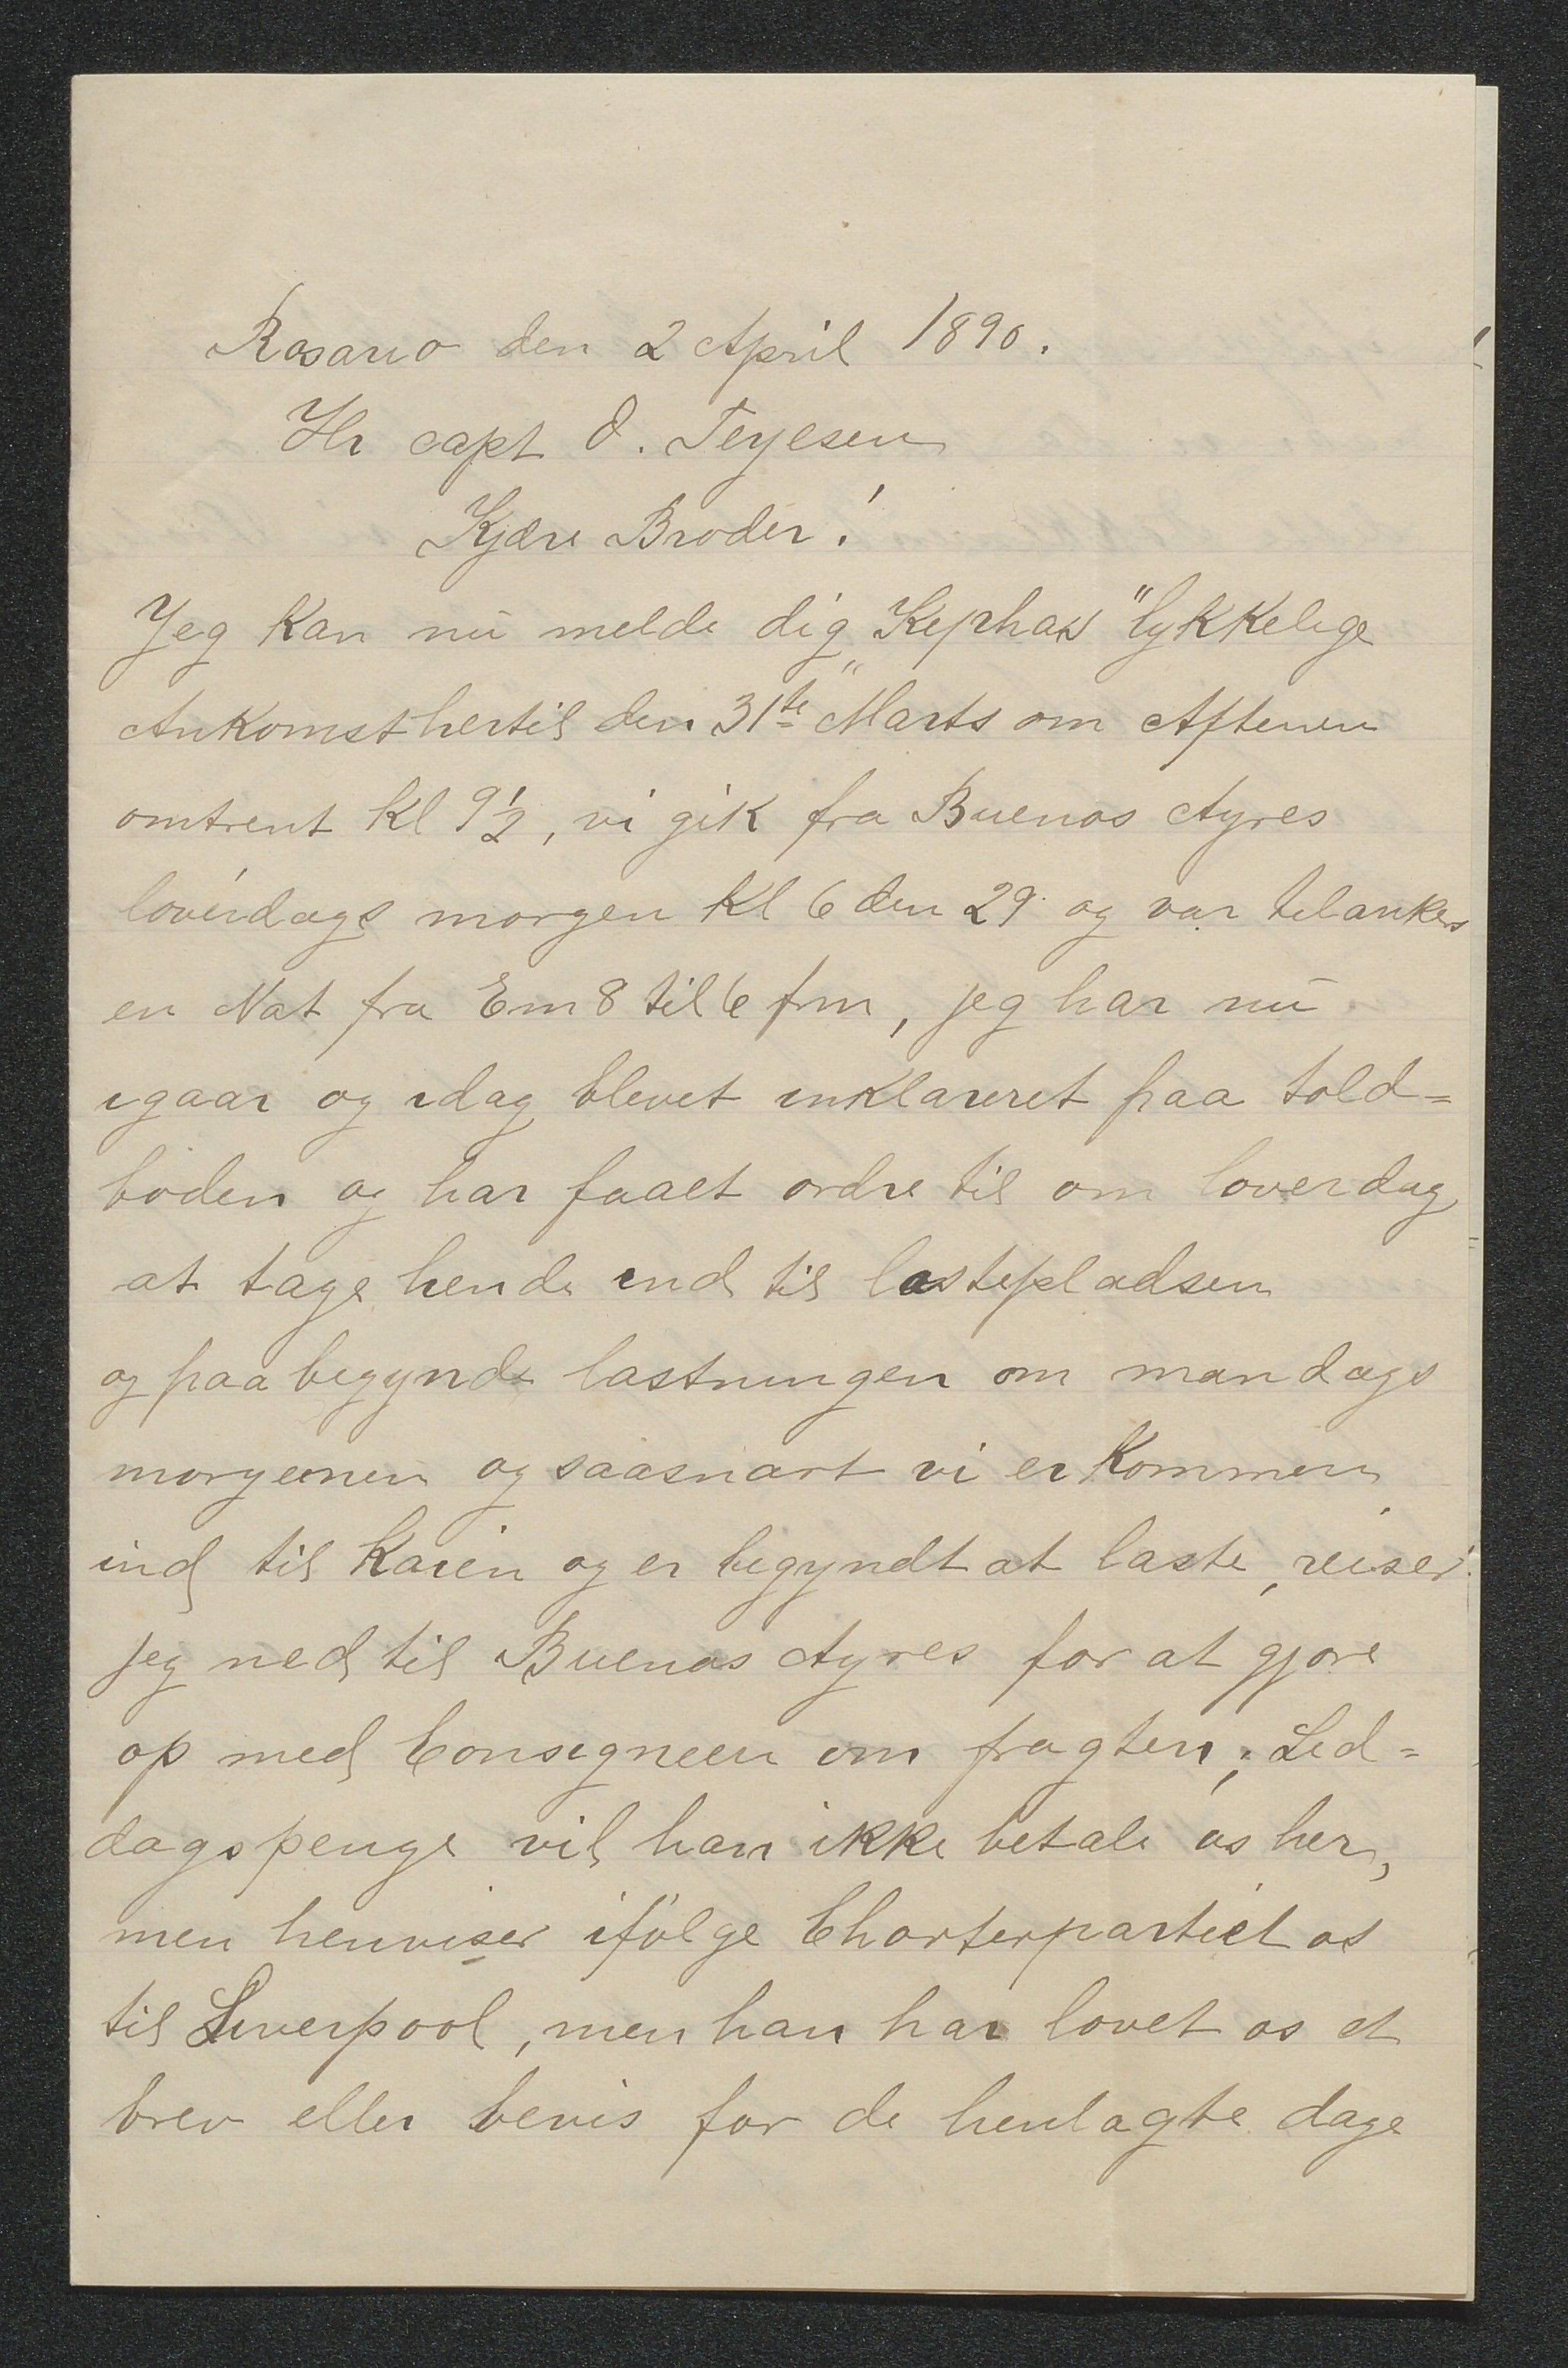 Rosario den 2 April 1890.
Hr capt O. Terjesen
Kjære Broder!
Jeg kan nu melde dig „Kephas" lykkelige
Ankomst hertil den 31te Marts om Aftenen
omtrent kl 9½, vi gik fra Buenos Ayres
loverdags morgen kl 6 den 29 og var tilankers
en Nat fra Em 8 til 6 fm, jeg har nu
igaar og idag blevet inklareret paa told=
boden og har faaet ordre til om loverdag
at tage hende ind til lastepladsen
og paabegynde lastningen om mandags
morgenen og saasnart vi er kommen
ind til kaien og er begyndt at laste, reiser
jeg ned til Buenos Ayres for at gjore
op med Consigneen om fragten; Lid=
dagspenge vil han ikke betale os her,
men henviser ifølge Charterpartiet os
til Liverpool, men han har lovet os et
brev eller bevis for de henlagte dage